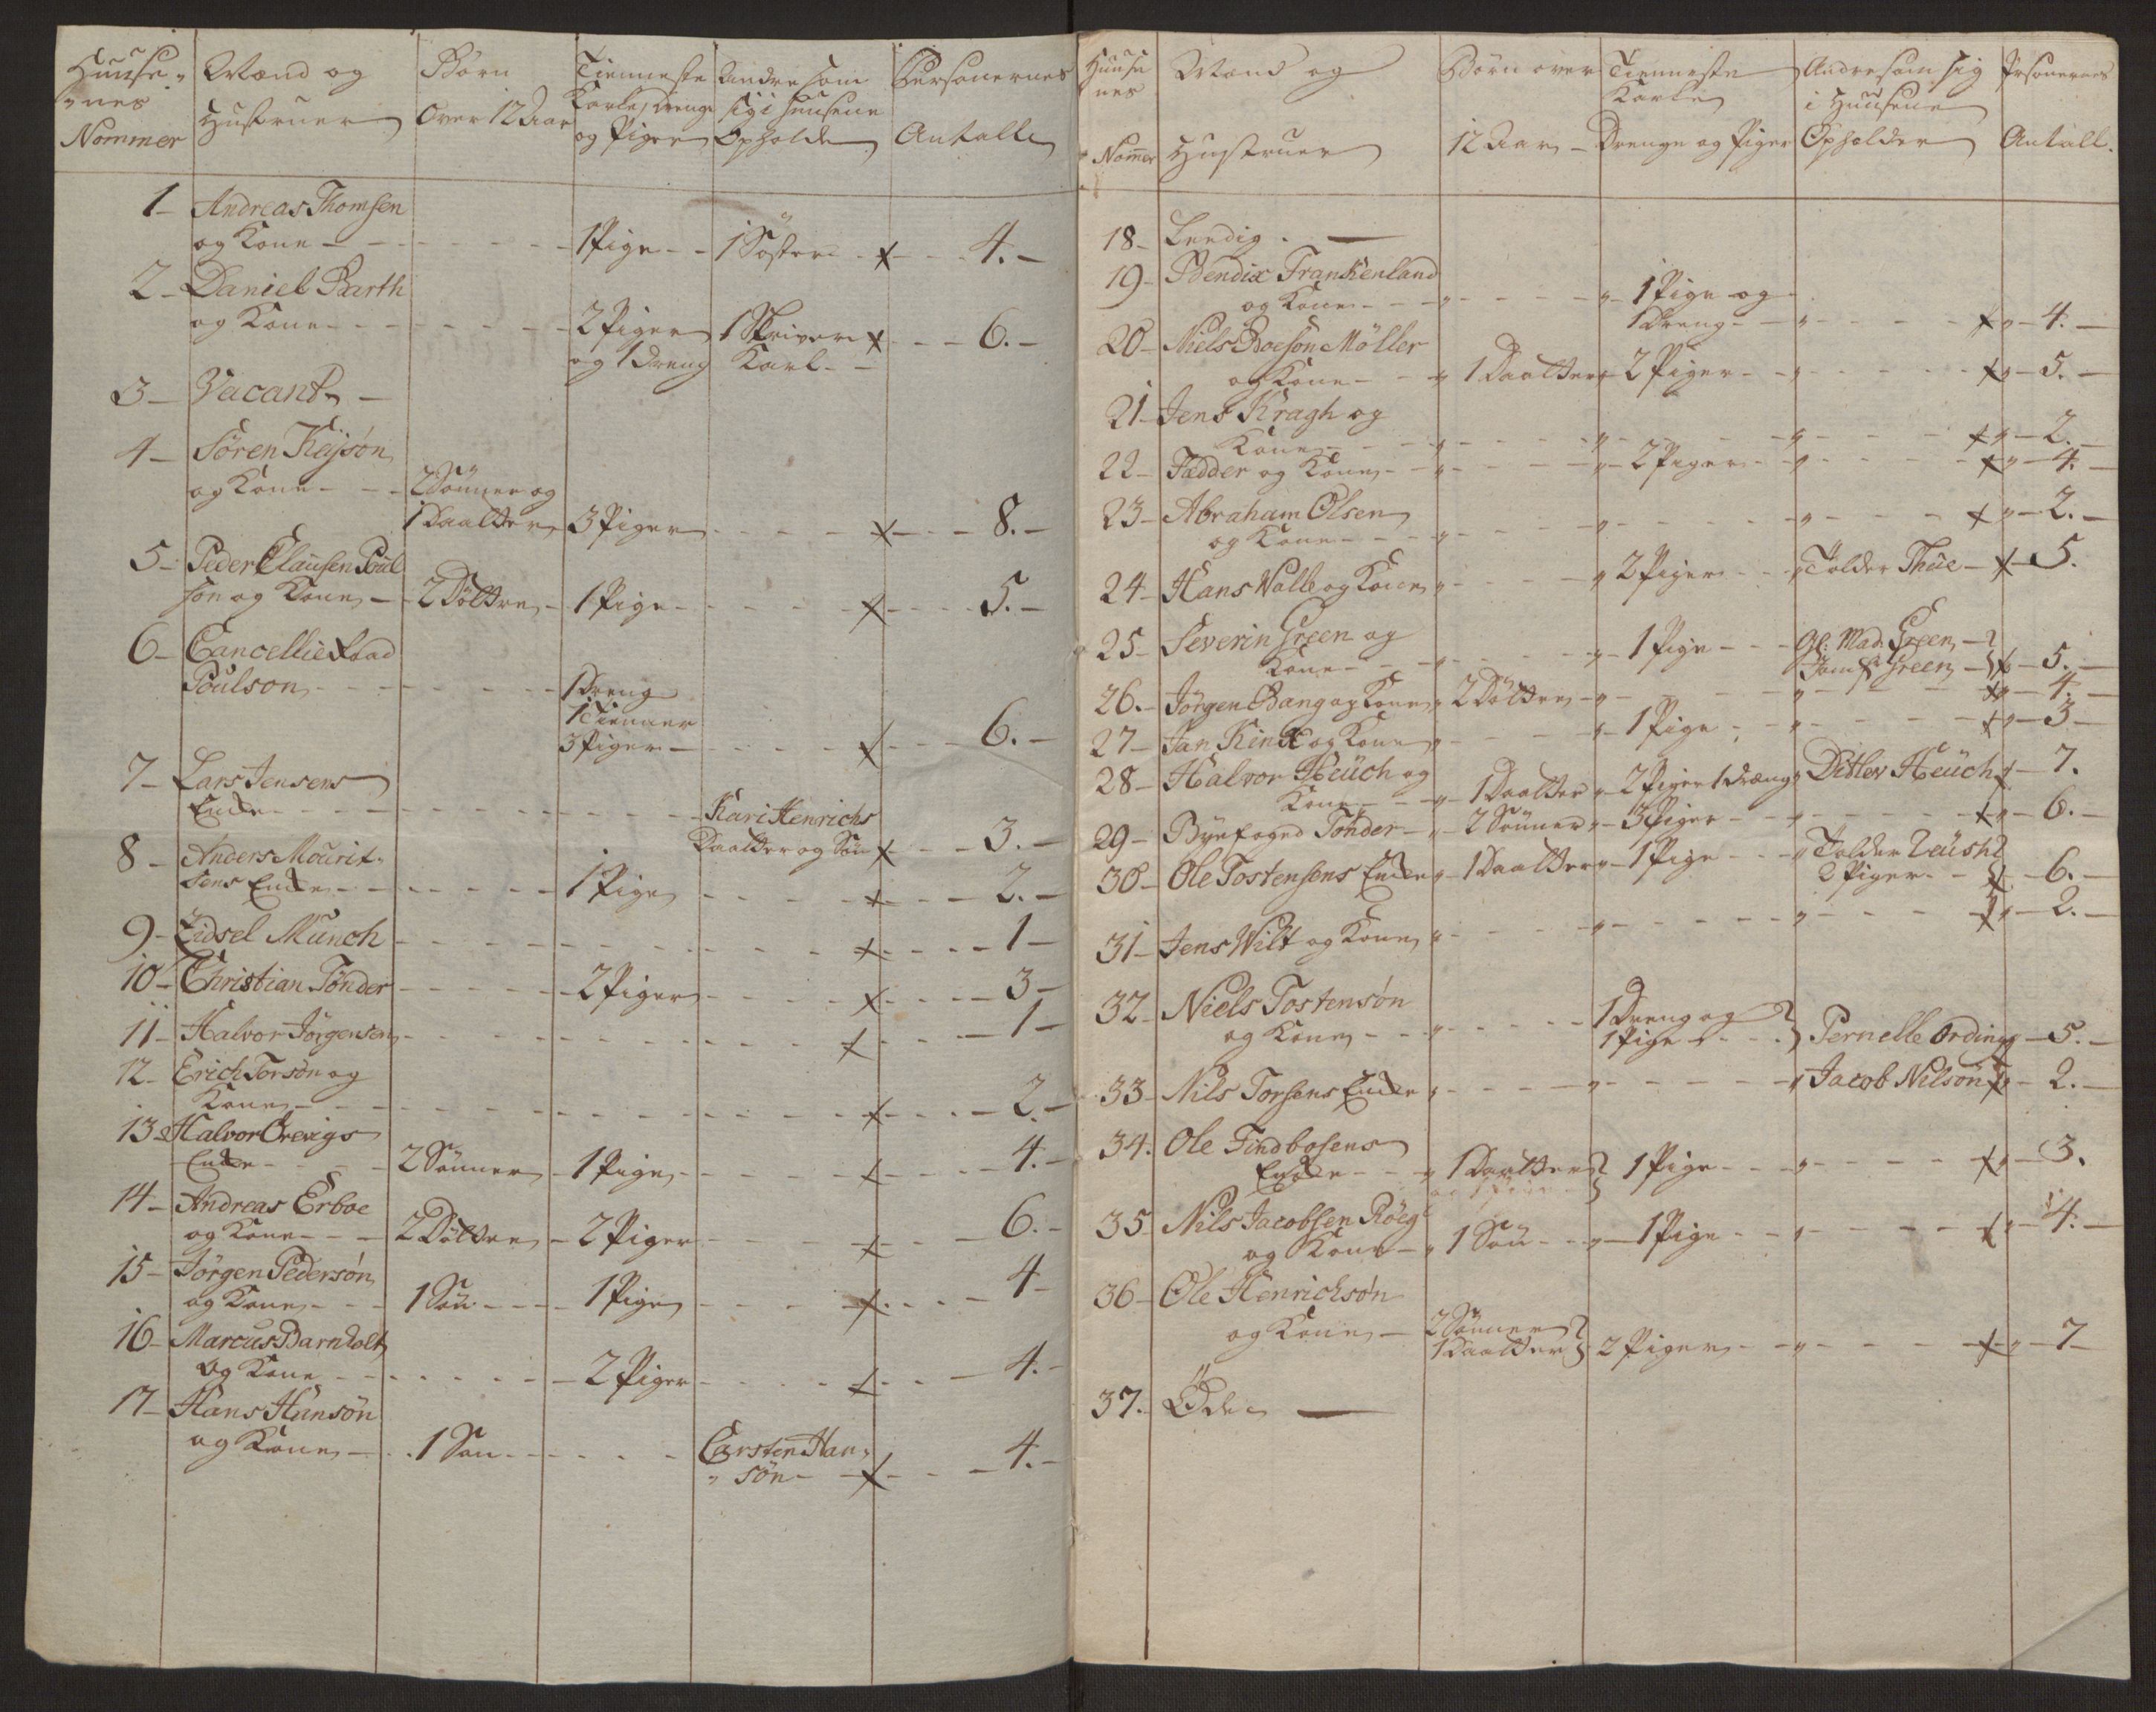 Huuse-
nes
Nommer
Mænd og
Hustruer
Børn
Over 12 Aar
Tienneste
Karle, Drenge
og Piger
Andre som
sig i Huusene
Opholder
Personernes
Antall
1 - Andreas Thomsen
og Kone - - - 1 Pige - - 1 Søster - x - - 4. -
2 - Daniel Barth
og Kone - - - 2 Piger 1 Skriver x - - 6. -
og 1 Dreng Karl - -
3 - Vacant -
4 - Sören Kejsön
og Kone - - - 2 Sönner og
1 Daatter 3 Piger - - - x - - 8. -
5 - Peder Clausen Poul
sön og Kone - - 2 Döttre - 1 Pige - - - x - - 5. -
6 - Cancellie Raad
Poulson - - - 1 Dreng
1 Tienner
3 Piger - - - x - - 6. -
7 - Lars Jensens
Encke - - - Kari Henrichs
Daatter og Sön x - - 3. -
8 - Anders Mourit-
sens Encke - - - 1 Pige - - - x - - 2. -
9 - Zidsel Munch - - - x - - 1 -
10 - Christian Tönder - - - 2 Piger - - - x - - 3 -
11 - Halvor Jörgensen - - - x - - 1 -
12 - Erich Torsön og
Kone - - - x - - 2. -
13 - Halvor Örevigs
Encke - - - 2 Sönner - 1 Pige - - - x - - 4. -
14 - Andreas Erboe
og Kone - - - 2 Döttre - 2 Piger - - - x - - 6. -
15 - Jörgen Pedersön
og Kone - - - 1 Sön - - - 1 Pige - - - x - - 4 -
16 - Marcus Barnholt
og Kone - - - 2 Piger - - - x - - 4. -
17 - Hans Hansön
og Kone - - 1 Sön - - - Carsten Han-
sön - x - - 4. -
Huuse
nes
Nomer
Mænd og
Hustruer
Börn over
12 Aar -
Tienneste
Karle
Drenge og Piger
Andre som sig
i Huusene
Opholder
Personernes
Antall.
18 - Leedig. -
19 - Bendix Frankenland
og Kone - - - 1 Pige og
1 Dreng - - - x - 4. -
20 - Niels Boesön Möller
og Kone - - 1 Daatter - 2 Piger - - - x - 5. -
21 - Jens Kragh og
Kone - - - x - 2. -
22 - Fædder og Kone - - - 2 Piger - - - x - 4. -
23 - Abraham Olsen
og Kone - - - x - 2. -
24 - Hans Valle og Kone - - - 2 Piger - - Tolder Thue - x - 5.
25 - Severin Green og
Kone - - - 1 Pige - - - Gl: Mad. Green -
Jomf: Green - x - 5. -
26. - Jörgen Bang og Kone 2 Döttre - - - x - 4. -
27 - Jan Kink og Kone - - - 1 Pige - - - x - 3 -
28 - Halvor Heüch og
Kone - - 1 Daatter - 2 Piger 1 Dræng Ditlev Heüch x - 7.
29 - Byefoged Tönder - 2 Sönner - 3 Piger - - - x - 6. -
30 - Ole Tostensens Encke - 1 Daatter - 1 Pige - - Tolder
2 Piger - x - 6. -
31 - Jens Wilt og Kone - - - x - 2. -
32 - Niels Tostensön
og Kone - - - 1 Dreng og
1 Pige - - - Pernelle Ording x - 5. -
33 - Nils Torsens Encke - - - Jacob Nilsön x - 2. -
34. Ole Findbosens
Encke - - 1 Daatter 1 Pige - - - x - 3.
35 Nils Jacobsen Röeg
og Kone - 1 Sön - - 1 Pige - - - x - 4. -
36 - Ole Henrichsön
og Kone - 2 Sönner
1 Daatter 2 Piger - - - x - 7 -
37. Öde -